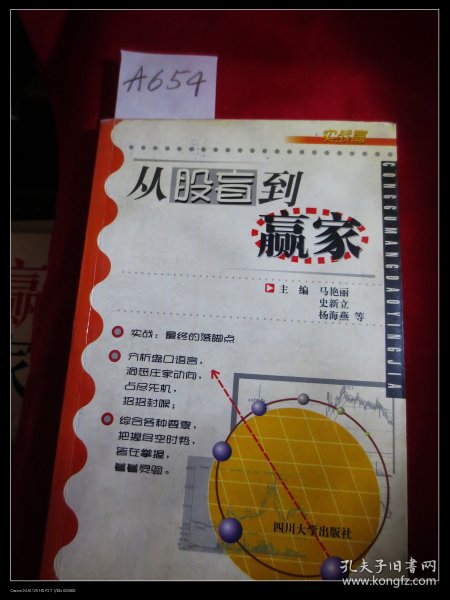 A654
实战篇
从股盲到
赢家
CONGGUMANGDAOYINGJIA
主编 马艳丽
史新立
杨海燕 等
实战:最终的落脚点
分析盘口语言,
洞悉庄家动向,
占尽先机,
招招封喉;
综合各种要素,
把握多空时势,
皆在掌握,
着着灵验。
四川大学出版社
赢
家
孔夫子旧书网
www.kongfz.com